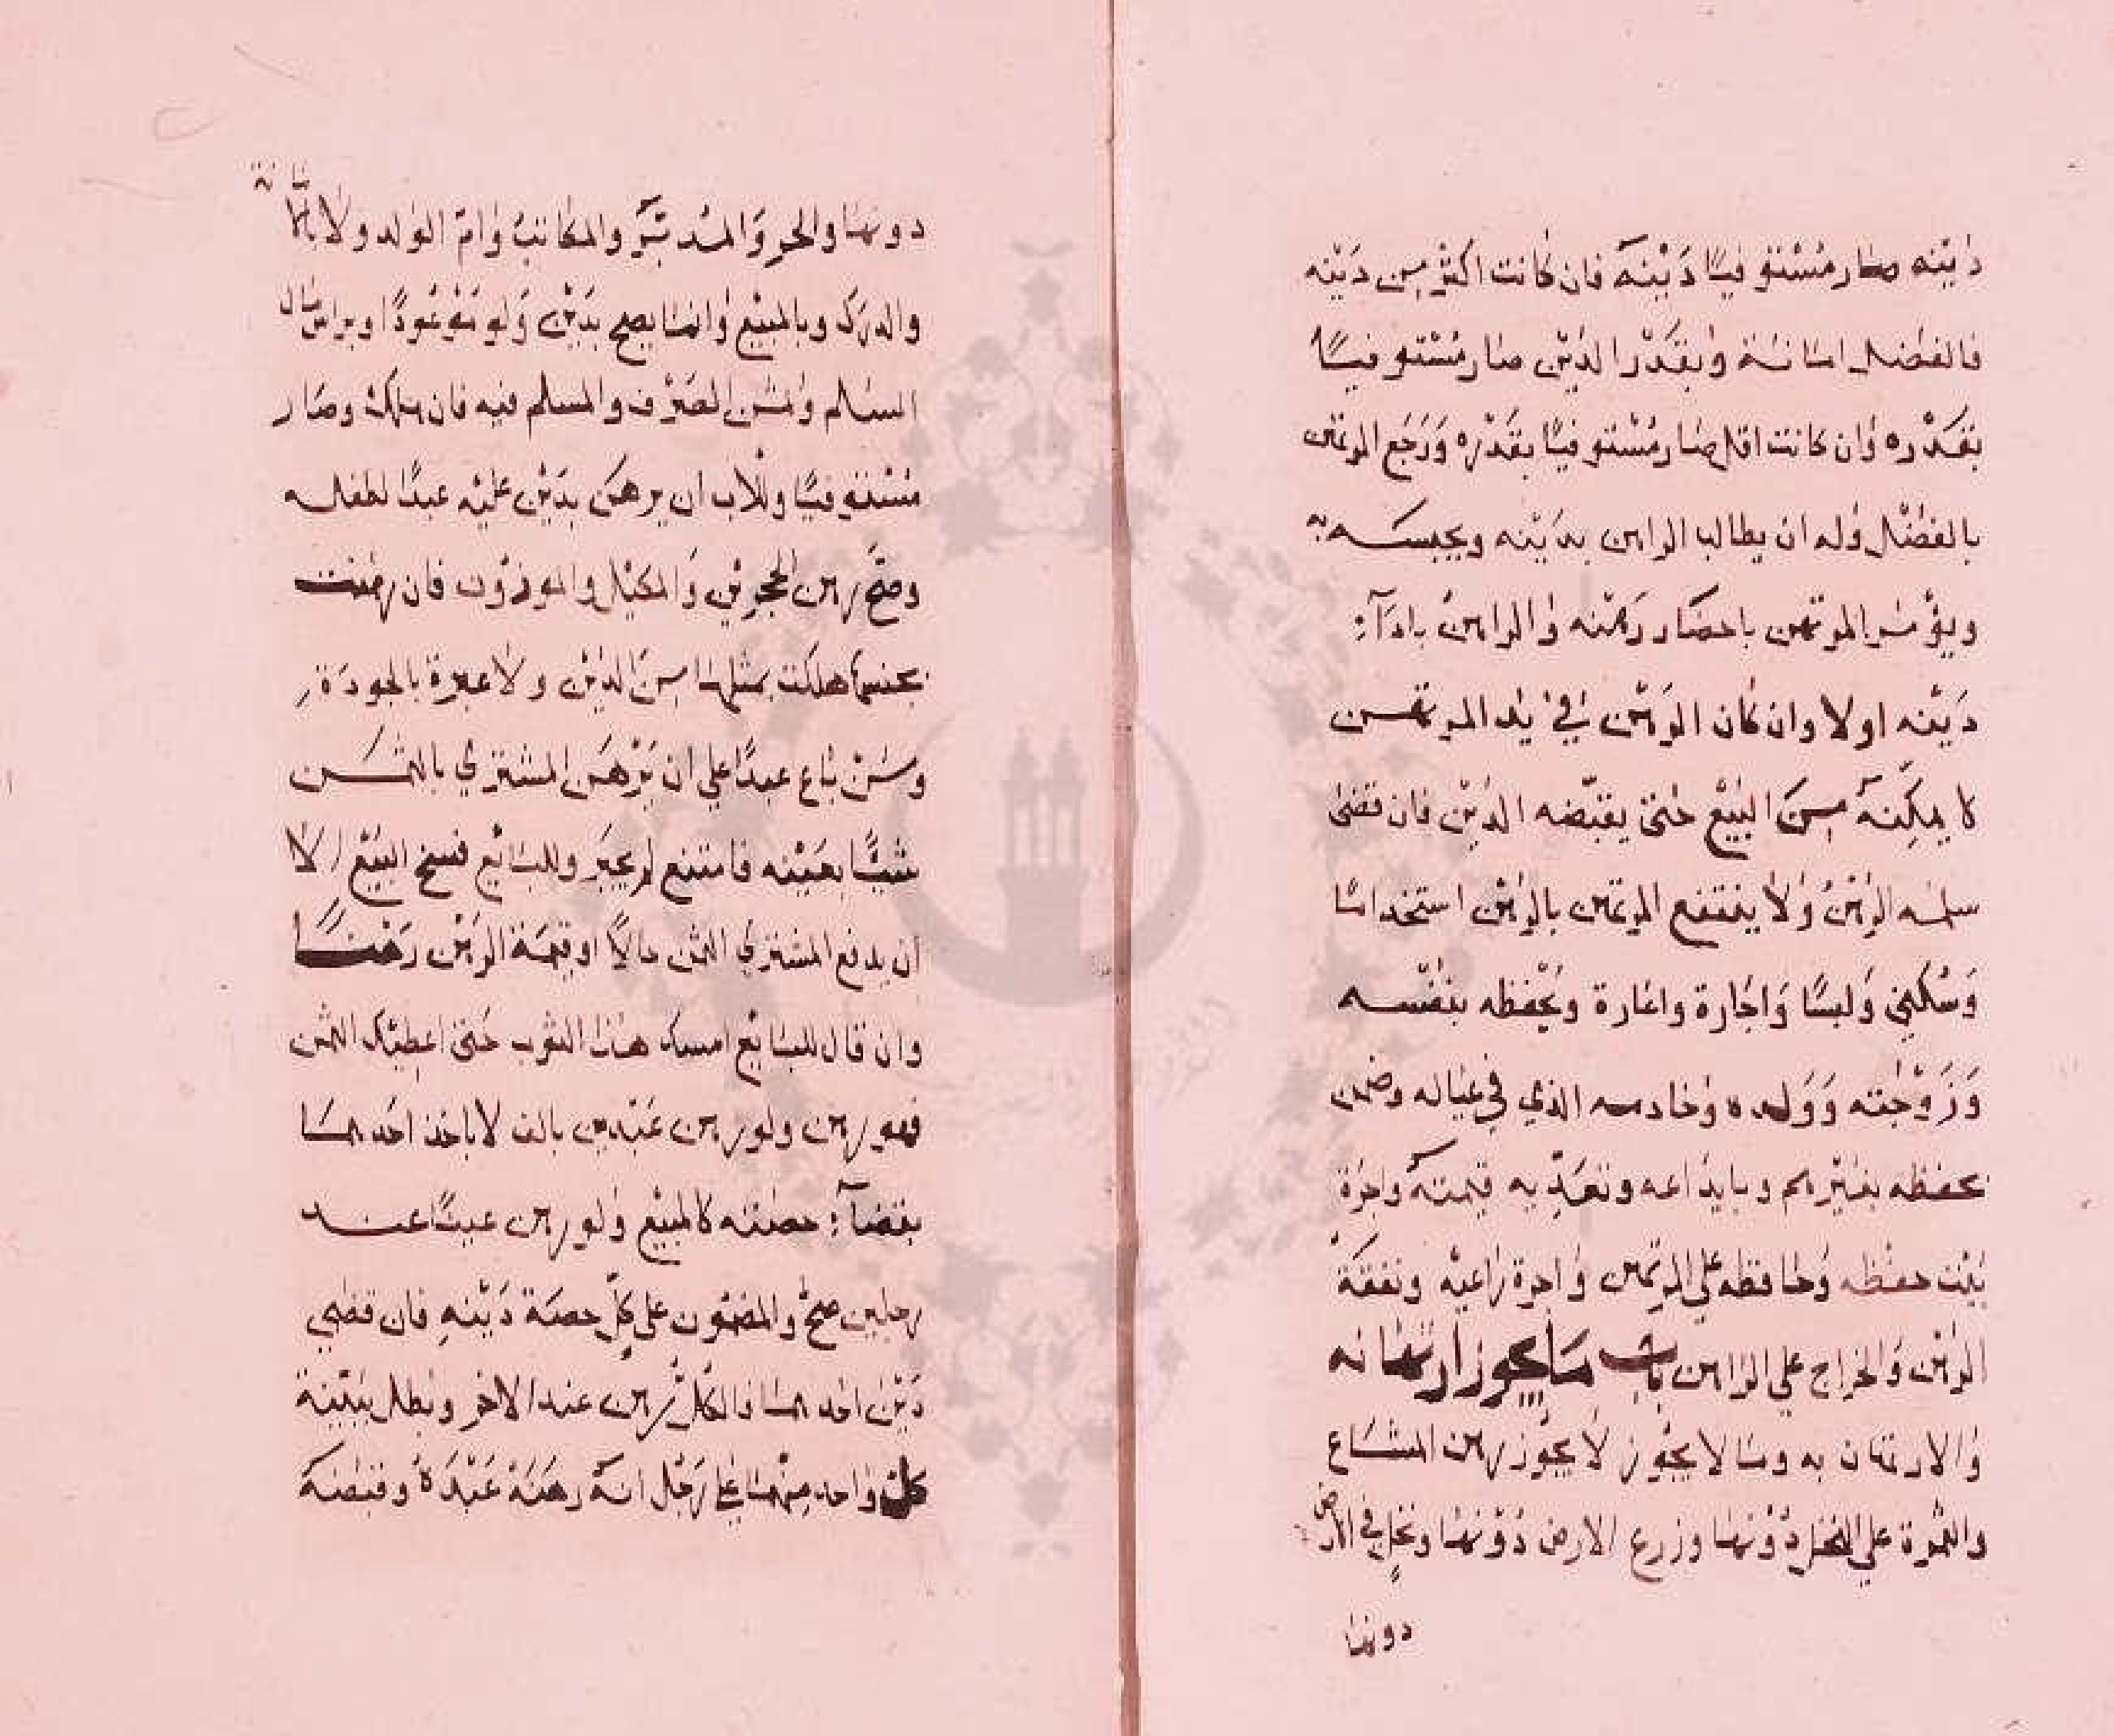 دَيْنه صار مُسْتَوفيًا دَيْنَه فان كانت اكثر من دَيْنه
فالفضل امانة وبقَدْر الدَيْن صار مُسْتَوفيًا
بقَدْره وان كانت اقل صار مُسْتوفيًا بقَدْره وَرَجَع المرتهن
بالفضْل وله ان يطالب الراهن بدَيْنه ويحبسه به
ويؤمر المرتهن باحضار رَهْنه والراهن باداۤء
دَيْنه اولا وان كان الرَهْن في يد المرتهن
لا يمكِّنهُ من البَيْع حتى يقبّضه الدَيْن فان قضى
سلمه الرَهْن ولا ينتفع المرتهن بالرهْن استخداما
وَسُكنى وَلبسًا وَاجَارة واعارة ويَحْفظه بنفْسه
وَزَوْجَته وَوَلده وخادمه الذي في عياله وضمن
بحفظه بغَيْرهم وبايداعه وتعَدّيه قيمتَه واجرة
بَيْت حفْظه وحافظه على المرتهن واجرة راعيه ونفقَةُ
الرهْن والخراج على الراهن بابُ مَا يجوز ارتهانه
والارتهان به وما لا يجُوز لا يجُوز رهن المشَاع
والثمرة على النخل دُوْنها وزرع الارض دُوْنها ونخلٍ في الارض
دونها
دونها والحرِ وَالمُدبَّر والمكاتب وامّ الولد ولا بالامانة
والدرَك وبالمبيْع وانما يصح بدَيْن وَلو مَوْعُودًا وبراس مال
السلم وثمن الصَرْف والمسلم فيه فان هلك وصَار
مُسْتوفيًا وللْاب ان يرهن بدَيْن عليْه عبدًا لطفله
وصَحَّ رهن الحجرين وَالمكيْل والموزون فان رهنت
بجنسها هلكت بمثلها من الدَيْن ولا عبرة بالجودَة
ومَنْ باع عبدًا على ان يَرْهَن المشتري بالثمن
شيئًا بعَيْنه فامتنع لم يجبَر وللبائع فسخ البَيْع الا
ان يدفع المشتري الثمن حالاً او قيمَة الرَهْن رَهْنًا
وان قال للبَائع امسك هذا الثوب حَتى اعطيْك الثمن
فهو رهن ولو رهن عَبْدين بالف لا ياخذ احَدهما
بقضاۤء حصته كالمبيْع ولو رهن عينًا عند
رجلين صحّ والمضمُون على كلِّ حصَة دَيْنهِ فان قضى
دَيْن احدهما فالكُلّ رهن عند الاخر وبطل بَيّنة
كلّ واحد منْهما على رَجُل انَه رهَنَهُ عَبْدَهُ وقبَضَه